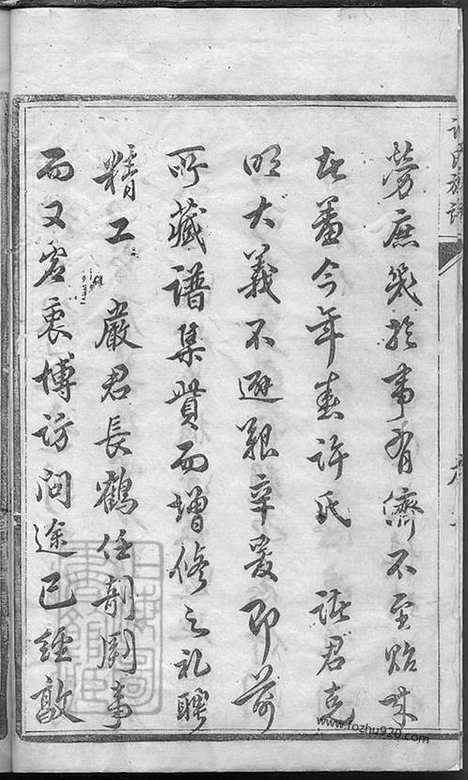 勞庶幾於事有濟不至貽誤
於蓋今年春許氏 諸君克
明大義不避艱辛爰即前
所藏譜集費而增修之禮聘
精工 嚴君長鶴任剞劂事
而又虛衷博訪問途已經敦
許氏族譜
www.fozhu920.com